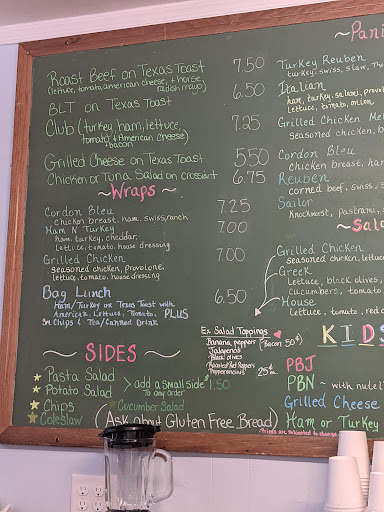 Roast Beef on Texas Toast 7.50
(lettuce, tomato, american cheese, + horse radish mayo)
BLT on Texas Toast 6.50
Club (turkey, ham, lettuce, 7.25
tomato, + American cheese)
+ bacon
Grilled Cheese on Texas Toast 5.50
Chicken or Tuna Salad on croissant 6.75
~Wraps~
Cordon Bleu 7.25
chicken breast, ham, swiss, ranch
Ham N Turkey 7.00
Ham, turkey, cheddar,
lettuce, tomato, house dressing
Grilled Chicken 7.00
seasoned chicken, provolone,
lettuce, tomato, house dressing
Bag Lunch 6.50
Ham/Turkey on Texas Toast with
American, Lettuce, Tomato, PLUS
Sm Chips & Tea/Canned Drink
~ SIDES ~
Pasta Salad
Potato Salad
> add a small side $1.50
To any order
Chips
Cucumber Salad
Coleslaw
(Ask about Gluten Free Bread)
Ex Salad Toppings
Banana peppers
Jalapenos
Black olives
Roasted Red Peppers
Pepperoncinis
25¢ ea.
(Bacon 50¢)
~Pani
Turkey Reuben
turkey, swiss, slaw,
Italian
ham, turkey, salami, provol
lettuce, tomato, onion
Grilled Chicken Mel
seasoned chicken, b
Cordon Bleu
chicken breast, ham
Reuben
corned beef, swiss,
Sailor
Knockwurst, pastrami,
~Sala
Grilled Chicken
seasoned chicken, lettuce
Greek
lettuce, black olives,
cucumbers, tomato
House
lettuce, tomato, red
KIDS
PBJ
PBN ~ with nutell
Grilled Cheese
Ham or Turkey
Prices are subjected to change